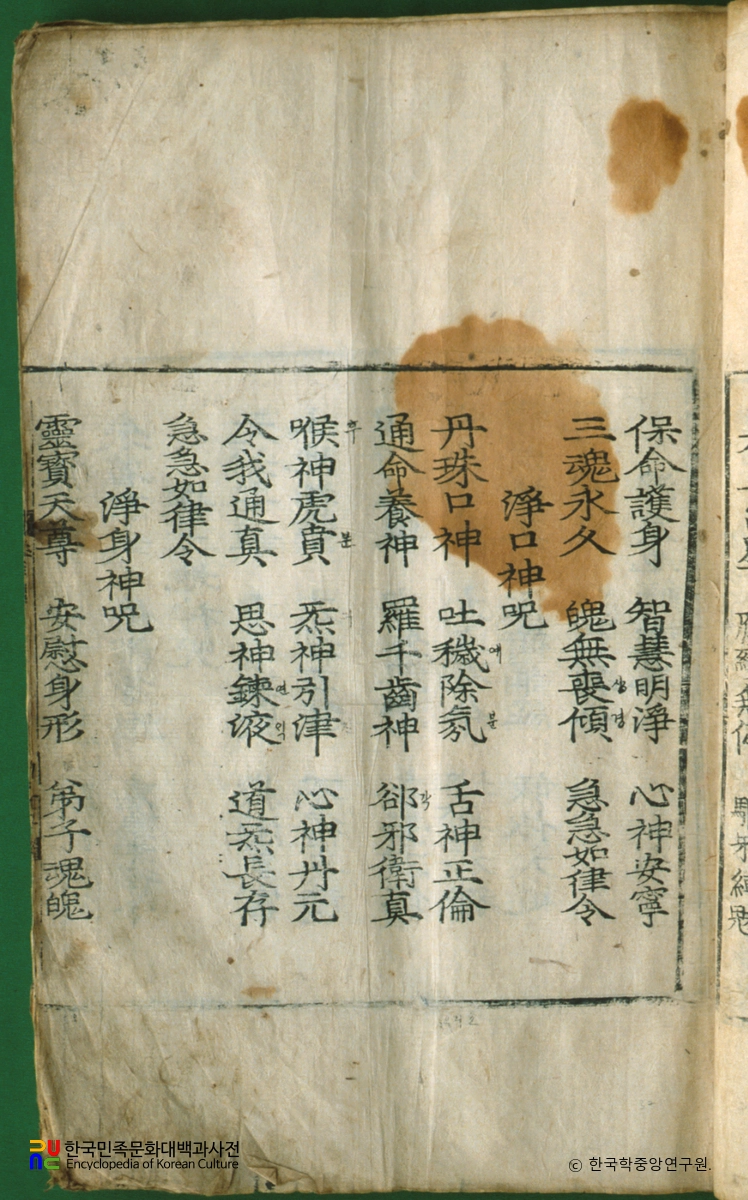 保命護身 智慧明淨 心神安寧
三魂永久 魄無喪傾 急急如律令
淨口神呪
丹珠口神 吐穢除氛 舌神正倫
通命養神 羅千齒神 郤邪衛真
喉神虎賁 炁神引津 心神丹元
令我通真 思神鍊液 道炁長存
急急如律令
淨身神呪
靈寶天尊 安慰身形 弟子魂魄
한국민족문화대백과사전
Encyclopedia of Korean Culture
© 한국학중앙연구원.